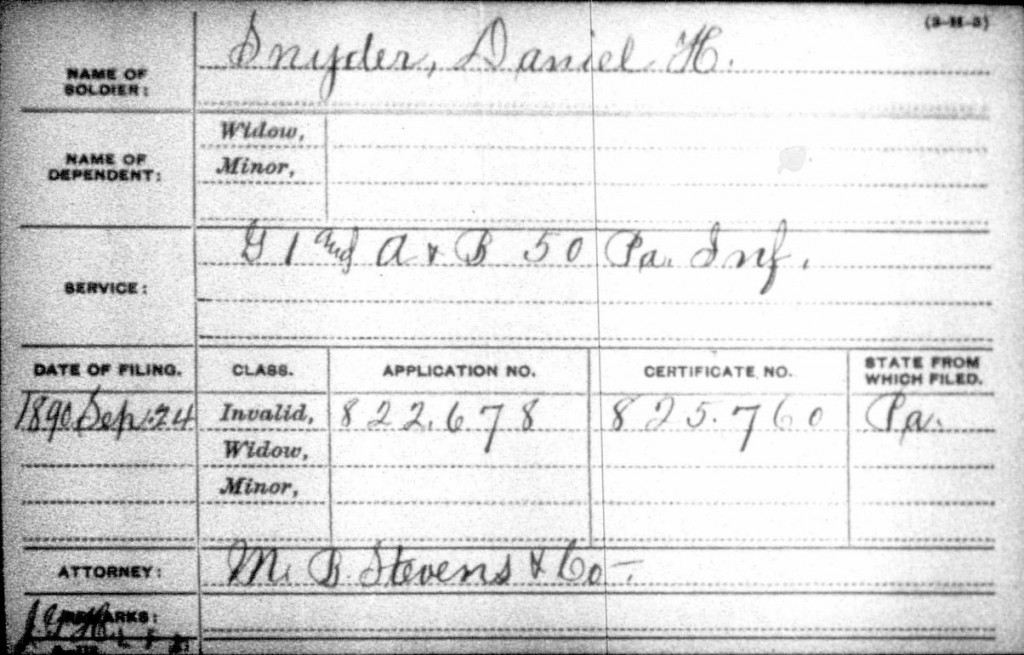 (3-H-3)
NAME OF SOLDIER: Snyder, Daniel H.
NAME OF DEPENDENT: Widow,
Minor,
SERVICE: G 1 and A & B 50 Pa. Inf.
DATE OF FILING. CLASS. APPLICATION NO. CERTIFICATE NO. STATE FROM WHICH FILED.
1890 Sep. 24 Invalid, 822.678 825.760 Pa.
Widow,
Minor,
ATTORNEY: M. B Stevens & Co-.
REMARKS: